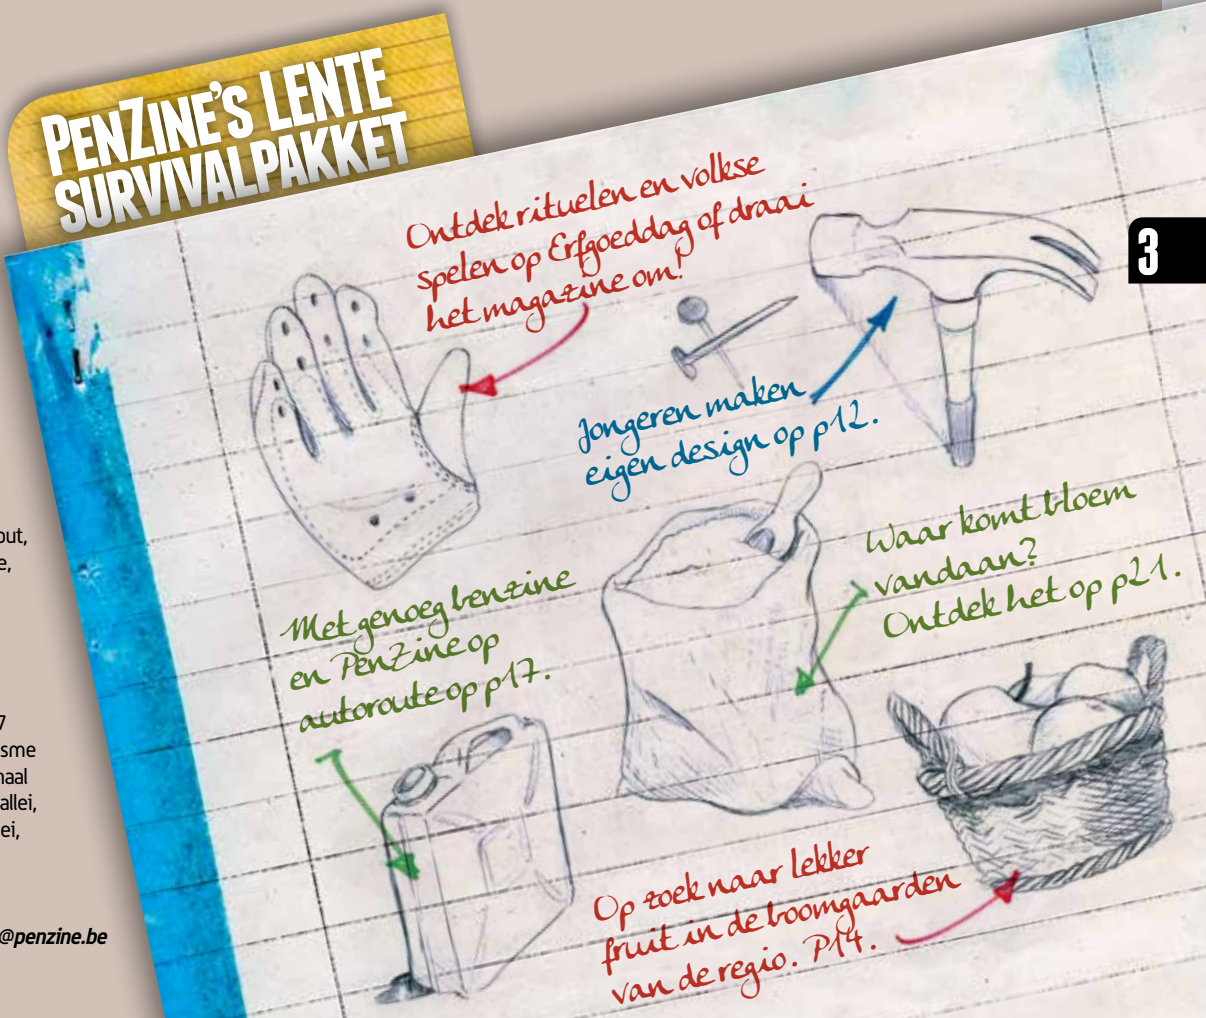 PENZINE'S LENTE
SURVIVALPAKKET
Ontdek rituelen en volkse
spelen op Erfgoeddag of draai
het magazine om!
3
Jongeren maken
eigen design op p12.
Waar komt bloem
vandaan?
Ontdek het op p21.
Met genoeg benzine
en PenZine op
autoroute op p17.
Op zoek naar lekker
fruit in de boomgaarden
van de regio. P14.
out,
e,
7
sme
naal
allei,
ei,
@penzine.be